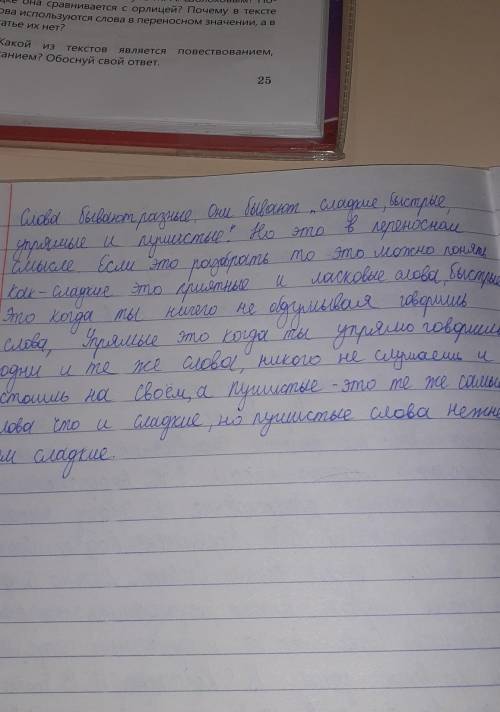 дке она сравнивается с орлицей? Почему в тексте
ова используются слова в переносном значении, а в
атье их нет?
Какой из текстов является повествованием,
санием? Обоснуй свой ответ.
25
Слова бывают разные, Они бывают „сладкие, быстрые,
упрямые и пушистые". Но это в переносном
смысле. Если это разобрать то это можно понять
как-сладкие это приятные и ласковые слова, быстрые
Это когда ты ничего не обдумывая говоришь
слова, Упрямые это когда ты упрямо говоришь
одни и те же слова, никого не слушаеш и
стоишь на своём, а пушистые - это те же самы
лова что и сладкие, но пушистые слова нежне
ем сладкие.